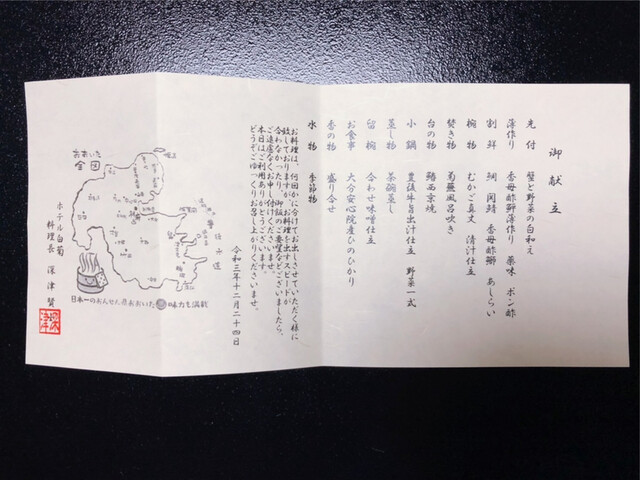 御献立
先付 蟹と野菜の白和え
薄作り 香母酢鰤薄作り 薬味 ポン酢
割鮮 鯛 関鯖 香母酢鰤 あしらい
椀物 むかご真丈 清汁仕立
焚き物 蕪風呂吹き
台の物 鰆西京焼
小鍋 豊後牛旨出汁仕立 野菜一式
蒸し物 茶碗蒸し
留椀 合わせ味噌仕立
お食事 大分安心院産ひのひかり
香の物 盛り合せ
水物 季節物
お料理は、何回かに分けてお出しさせていただく様に
致しておりますが、お料理を出すスピードが
合わなかったり、御飯の要望などございましたら、
ご遠慮なくお申し付けくださいませ。
本日はご利用ありがとうございます。
どうぞごゆっくりお召し上がりくださいませ。
令和三年十二月二十四日
おおいた
全図
日本一のおんせん県おおいた 味力も満載
ホテル白菊
料理長 深津賢